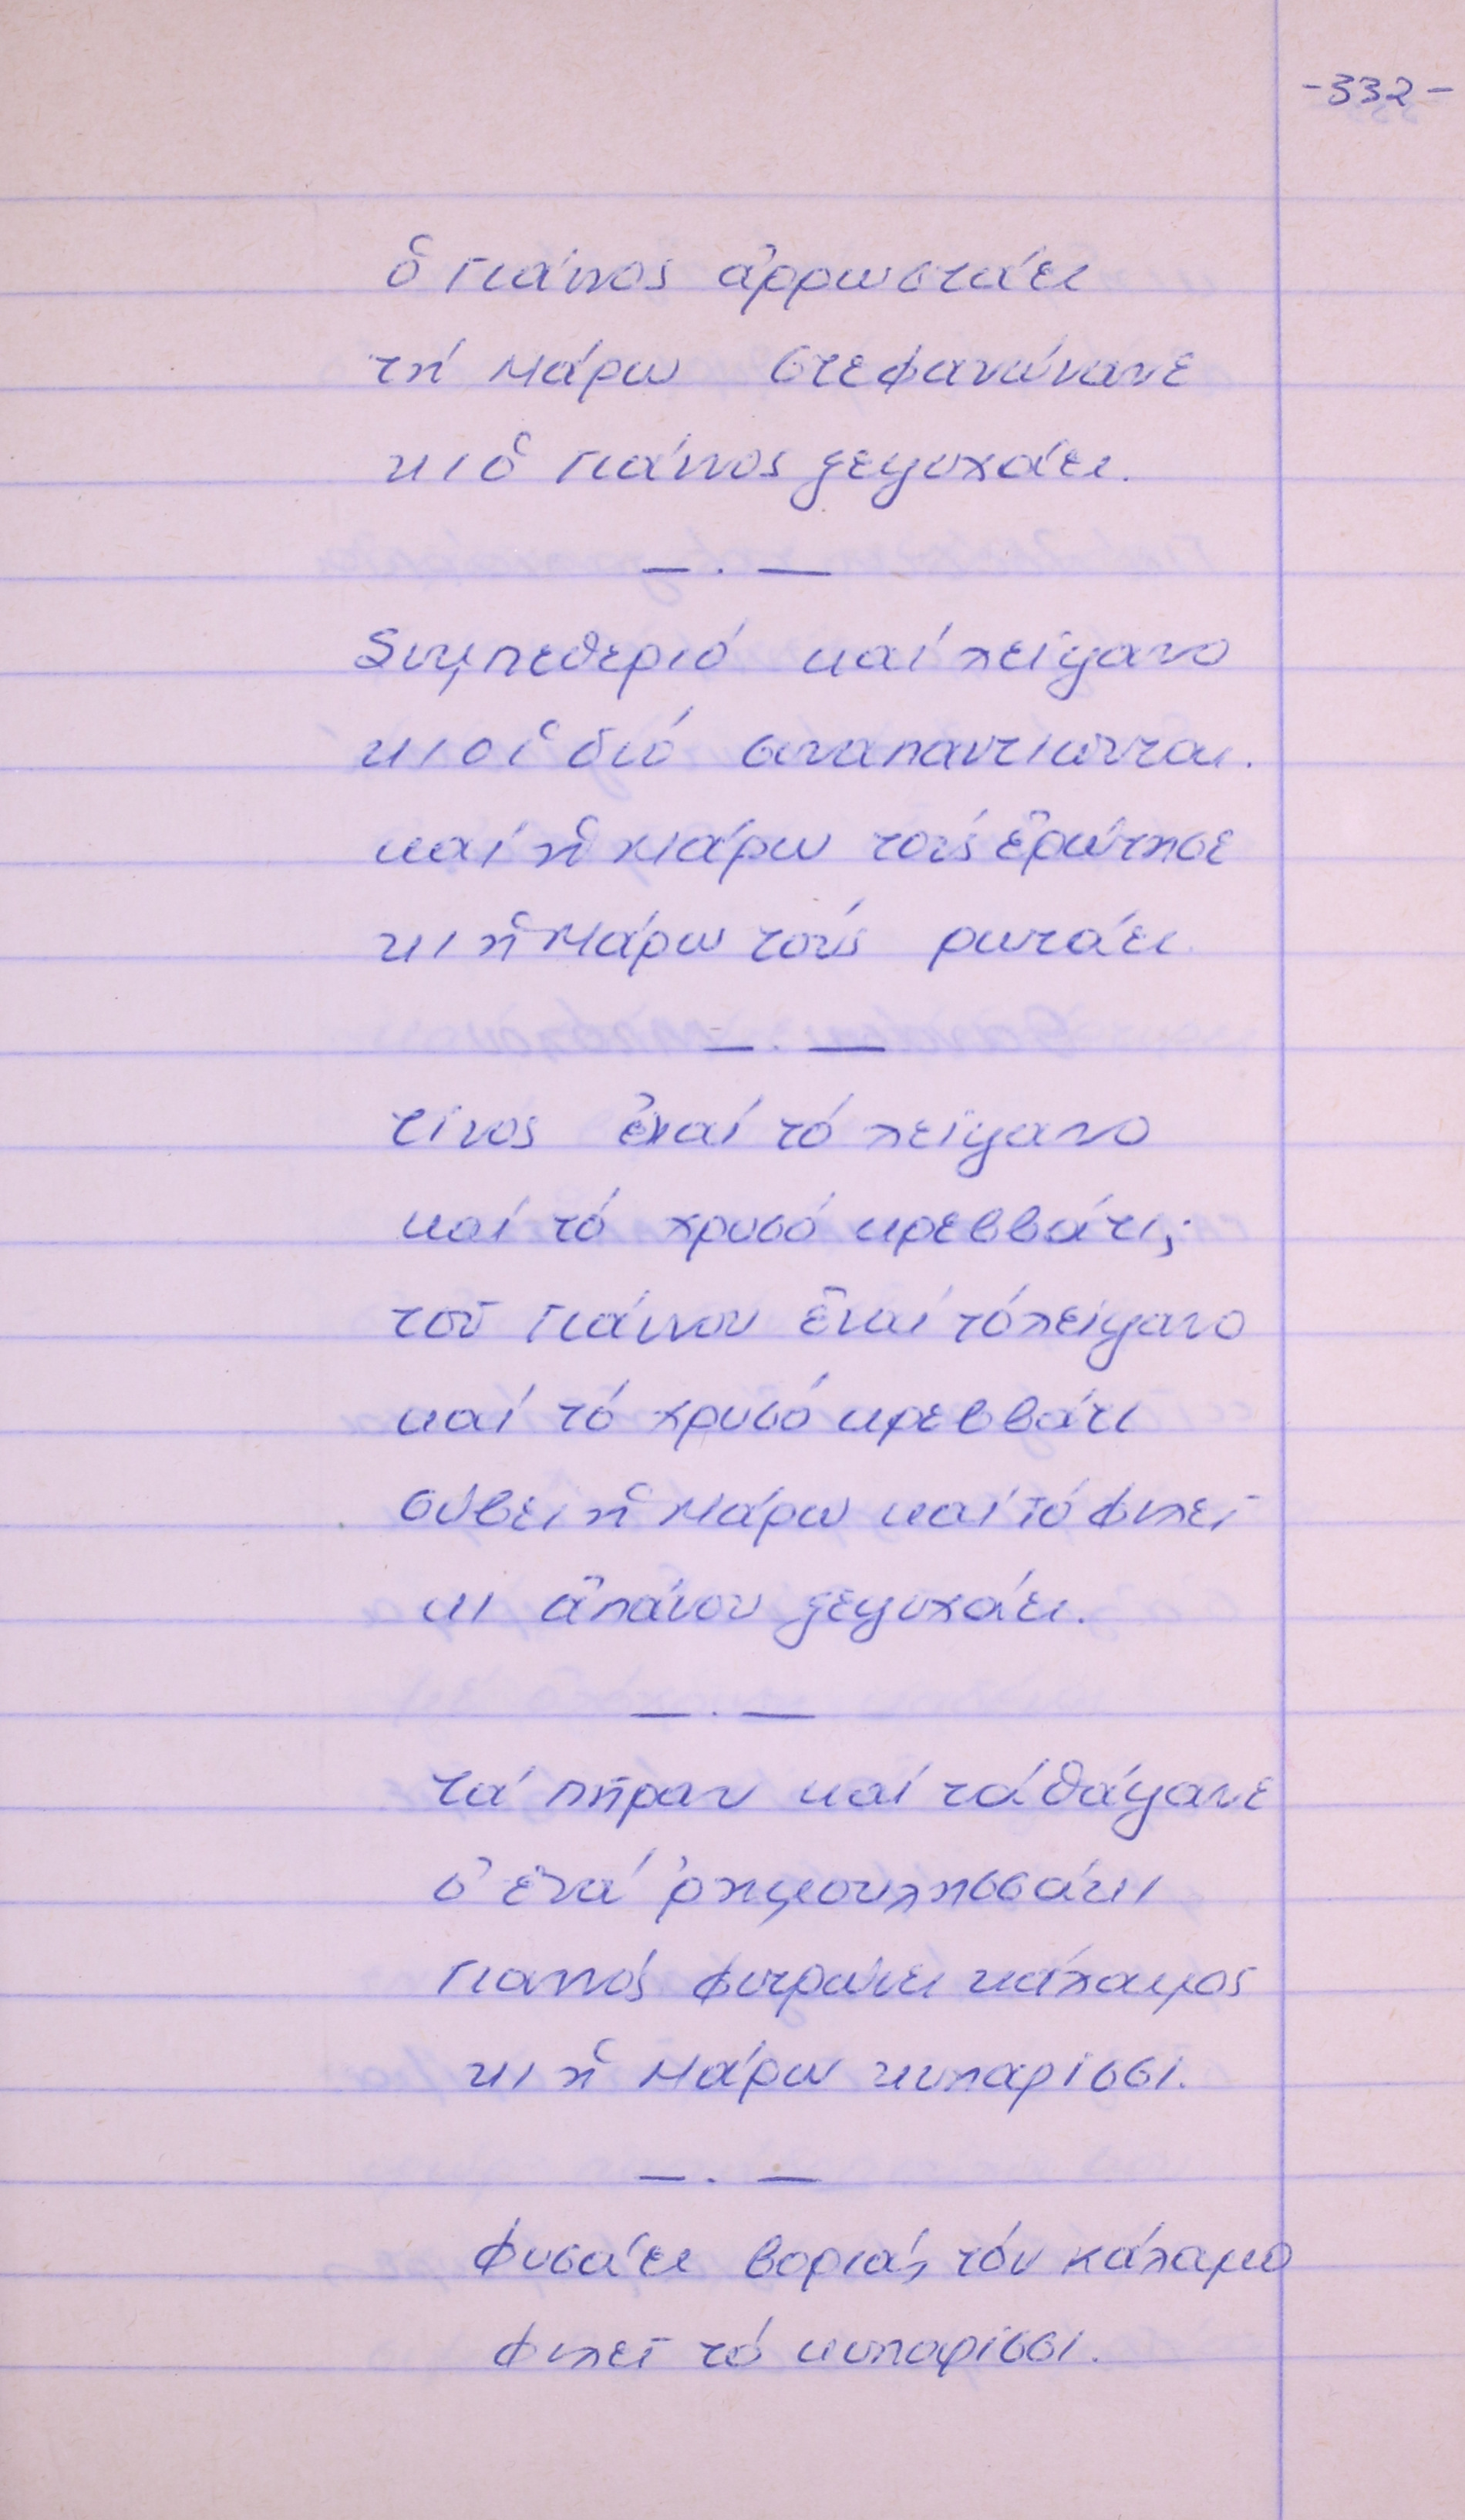 -332-
ὁ Γιάννος ἀρρωστάει
τή Μάρω στεφανώνανε
κι ὁ Γιάννος ξεψυχάει.
— . —
Συμπεθεριό καί λείψανο
κι οἱ διό συναπαντιώνται.
καί ἡ Μάρω τούς ἐρώτησε
κι ἡ Μάρω τούς ρωτάει.
— . —
τίνος εἶναί τό λείψανο
καί τό χρυσό κρεββάτι;
τοῦ Γιάννου εἶναί τό λείψανο
καί τό χρυσό κρεββάτι
σύβει ἡ Μάρω καί τό φιλεῖ
κι ἀπάνου ξεψυχάει.
— . —
τά πῆραν καί τά θάψανε
σ' ἕνα' ρημουλησσάκι
Γιαννός φυτρώνει κάλαμος
κι ἡ Μάρω κυπαρίσσι.
— . —
Φυσάει βοριάς τόν κάλαμο
φιλεῖ τό κυπαρίσσι.